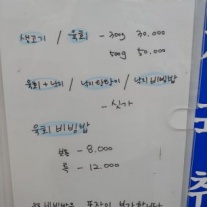 생고기 / 육회 - 300g 30.000
500g 50.000
육회+낙지 / 낙지탕탕이 / 낙지비빔밥
- 싯가
육회비빔밥
보통 - 8.000
특 - 12.000
비빔밥은 포장이 불가합니다